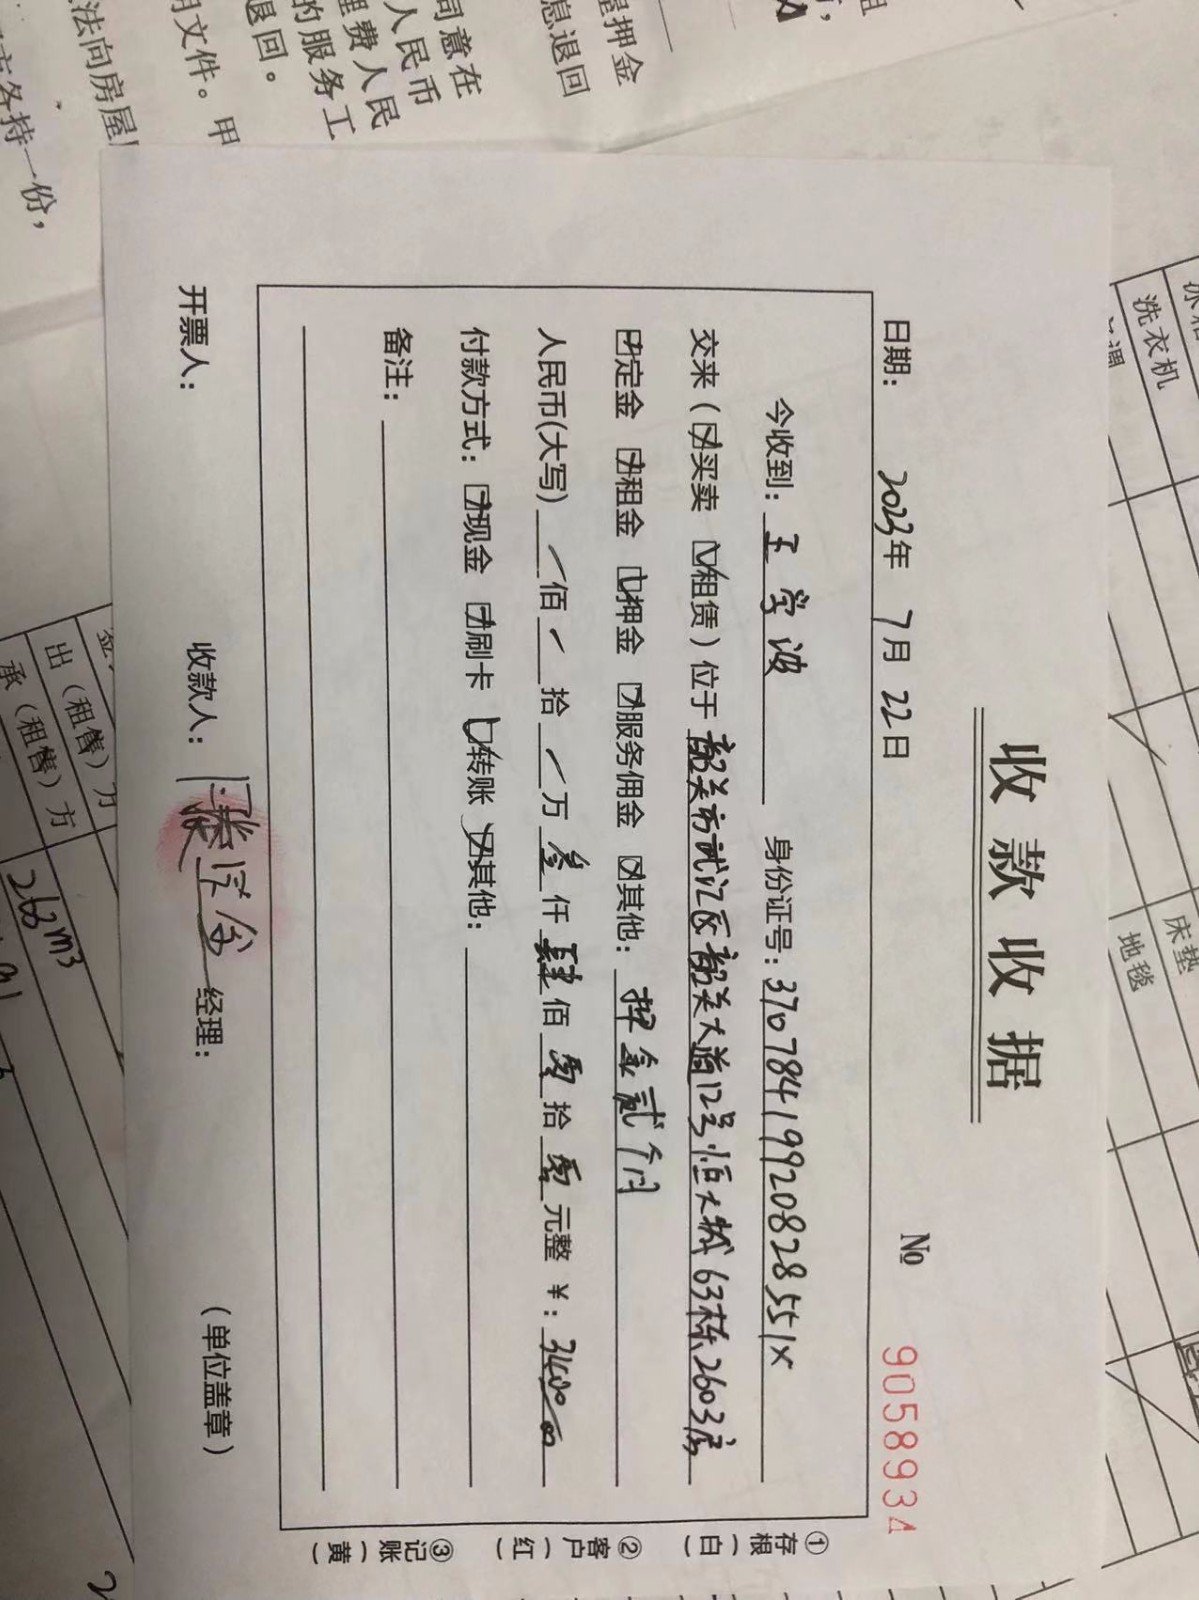 收款收据
№ 9058934
日期： 2023年 7月 22日
今收到：王学波 身份证号：37078419920828551X
交来（☑买卖 ☑租赁）位于韶关市武江区韶关大道12号恒大城63栋2603房
☑定金 ☑租金 ☑押金 ☑服务佣金 ☑其他：押金贰个月
人民币(大写) 佰 拾 万 叁仟肆佰零拾零元整 ￥：3400.00
付款方式：☑现金 ☑刷卡 ☑转账 ☑其他：
备注：
开票人： 收款人： 经理： （单位盖章）
①存根（白）
②客户（红）
③记账（黄）
屋押金
息退回
同意在
人民币
理费人民
的服务工
退回。
明文件。甲
法向房屋
方各持一份，
洗衣机
床垫
地毯
出（租售）方
承（租售）方
263m3